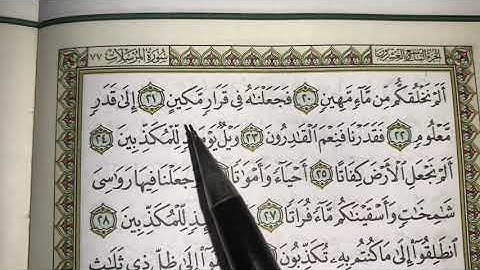 سورة المرسلات ٧٧
الجزء التاسع والعشرون
ألم نخلقكم من ماء مهين ٢٠ فجعلناه في قرار مكين ٢١ إلى قدر
معلوم ٢٢ فقدرنا فنعم القادرون ٢٣ ويل للمكذبين ٢٤
ألم نجعل الأرض كفاتا ٢٥ أحياء وأمواتا وجعلنا فيها رواسي
شامخات وأسقيناكم ماء فراتا ٢٧ للمكذبين ٢٨
انطلقوا إلى ما كنتم به تكذبون إلى ظل ذي ثلاث